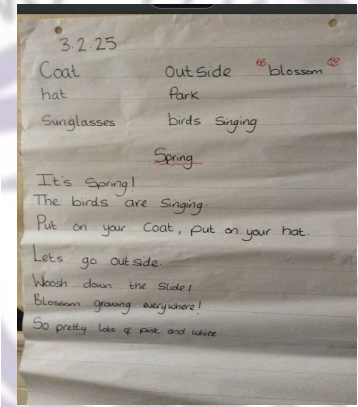 3.2.25
Coat outside "blossom"
hat Park
Sunglasses birds singing
Spring
It's Spring!
The birds are singing.
Put on your Coat, put on your hat.
Lets go outside.
Woosh down the Slide!
Blossom growing everywhere!
So pretty lots of pink and white